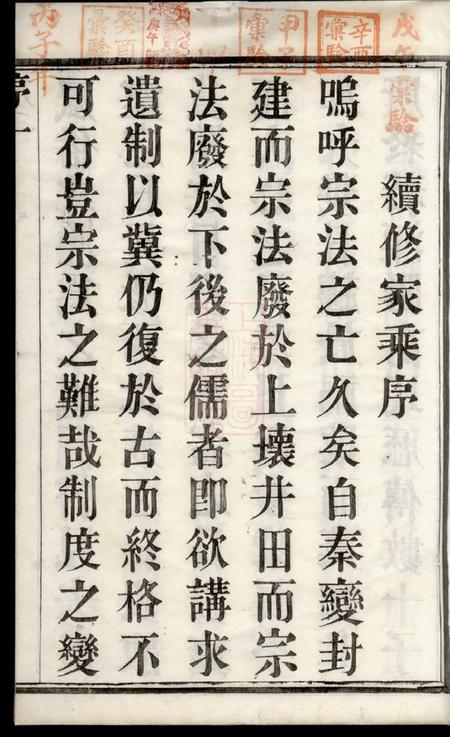 續修家乘序
嗚呼宗法之亡久矣自秦變封
建而宗法廢於上壞井田而宗
法廢於下後之儒者即欲講求
遺制以冀仍復於古而終格不
可行豈宗法之難哉制度之變
戊午
彙驗
辛酉
彙驗
甲子
彙驗
庚午
癸酉
彙驗
丙子年